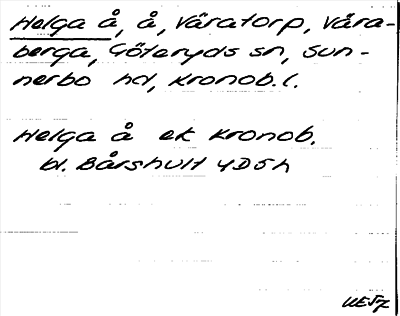 Helga å, å, Väratorp, Vära-
berga, Göteryds sn, Sun-
nerbo hd, Kronob. l.
Helga å ek Kronob.
bl. Bårshult 4D5h